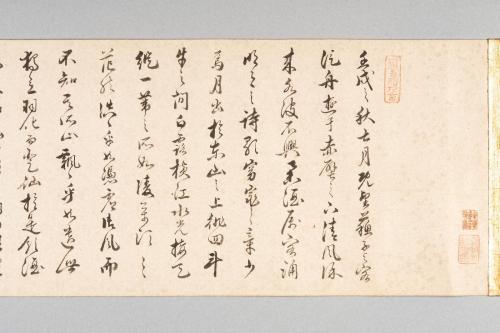 壬戌之秋七月既望蘇子與客
泛舟遊于赤壁之下清風徐
來水波不興舉酒屬客誦
明月之詩歌窈窕之章少
焉月出於東山之上徘徊斗
牛之間白露橫江水光接天
縱一葦之所如陵萬頃之
茫然浩浩乎如憑虛御風而
不知其所止飄飄乎如遺世
獨立羽化而登仙於是飲酒